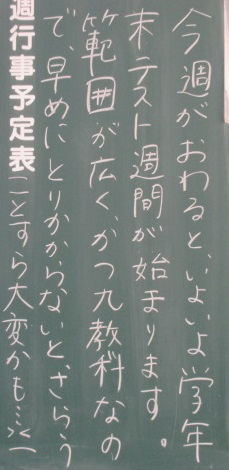 今週がおわると、いよいよ学年
末テスト週間が始まります。
範囲が広く、かつ九教科なの
で、早めにとりかからないと、ざらう
週行事予定表(とすら大変かも…;;)